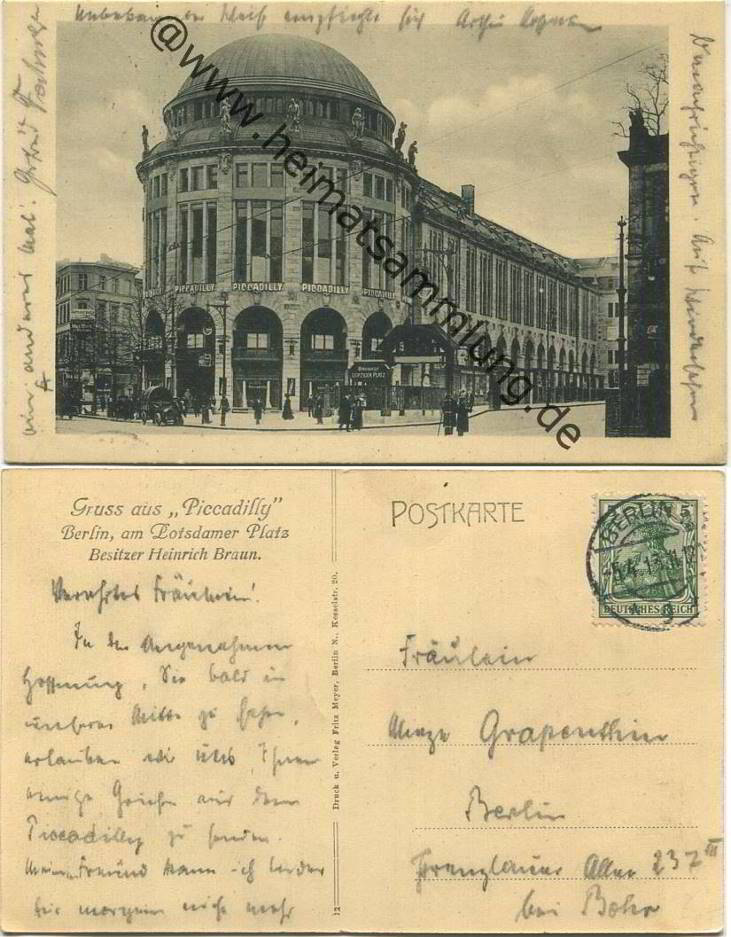 Unbekannter Weise empfiehlt sich Arthur
@www.heimatsammlung.de
ein anderes Mal.
PICCADILLY PICCADILLY PICCADILLY PICCADILLY
LEIPZIGER PLATZ
Gruss aus „Piccadilly"
Berlin, am Potsdamer Platz
Besitzer Heinrich Braun.
Verehrtes Fräulein!
In der angenehmen
Hoffnung, Sie bald in
unserer Mitte zu sehen,
erlauben wir uns, Ihnen
einige Grüße aus dem
Piccadilly zu senden.
Meinen Freund kann ich leider
für morgen nicht mehr
Druck u. Verlag Fritz Meyer, Berlin N., Kosselstr. 20.
12
POSTKARTE
BERLIN
5 5
DEUTSCHES REICH
Fräulein
Grapenthin
Berlin
Prenzlauer Allee 237 III
bei Bohr